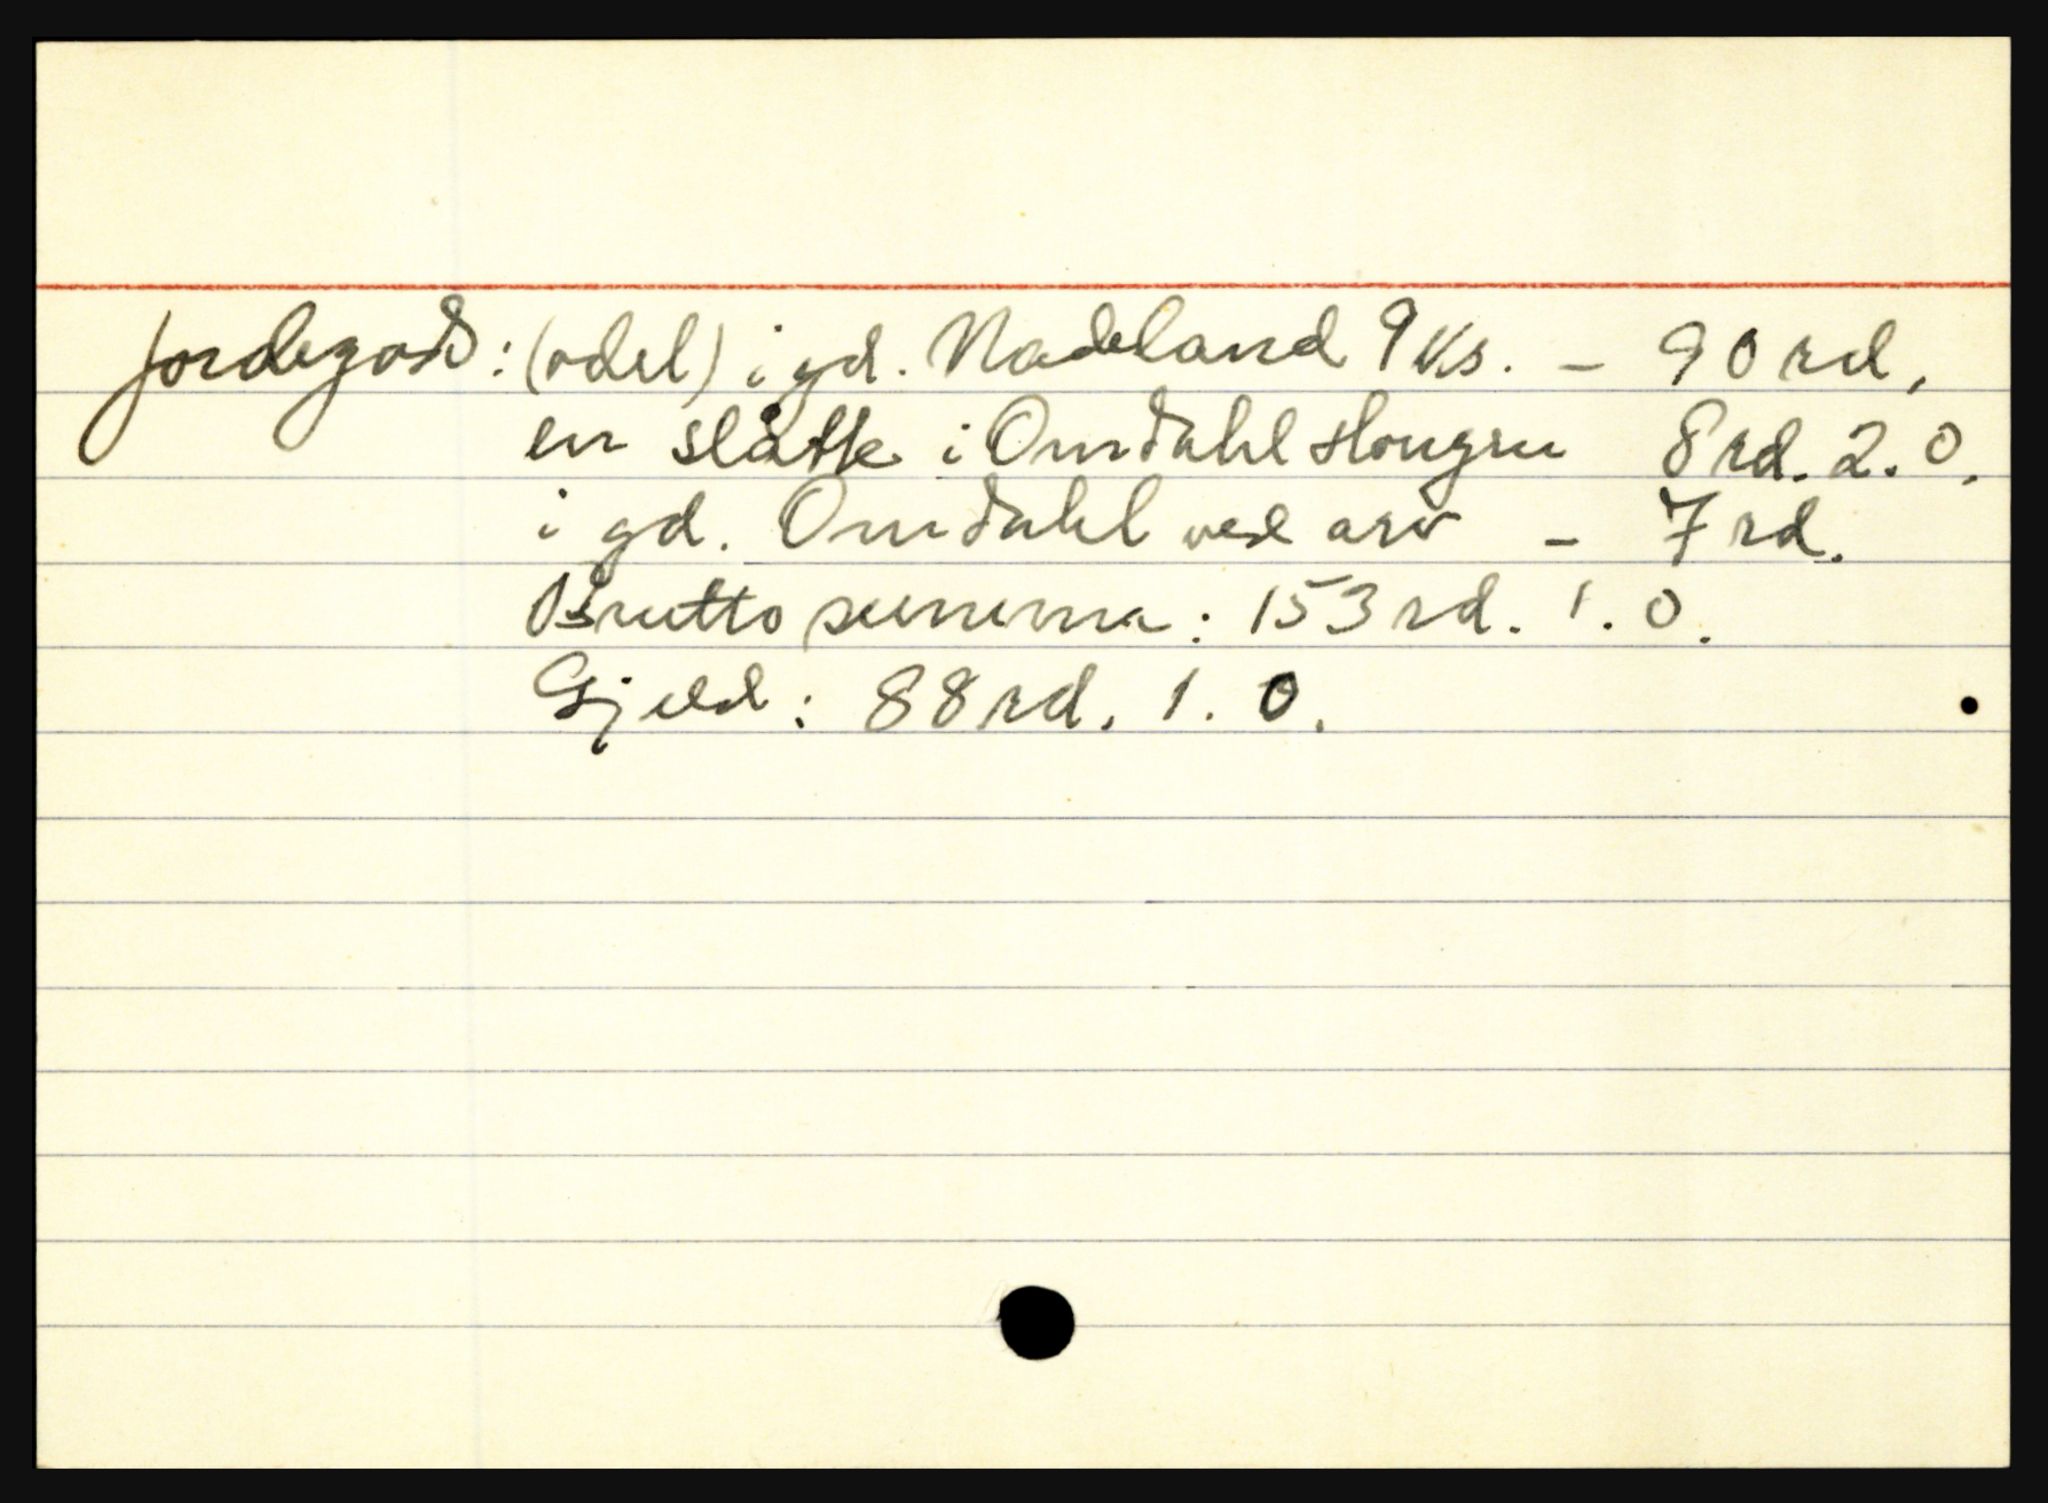 Jordegods: (odel) i gd. Nadeland 9 ks. - 90 rd,
en slåtte i Omdahl 8 rd. 2. 0.
i gd. Omdahl ved arv - 7 rd.
Brutto summa: 153 rd. 1. 0.
Gjeld: 88 rd. 1. 0.